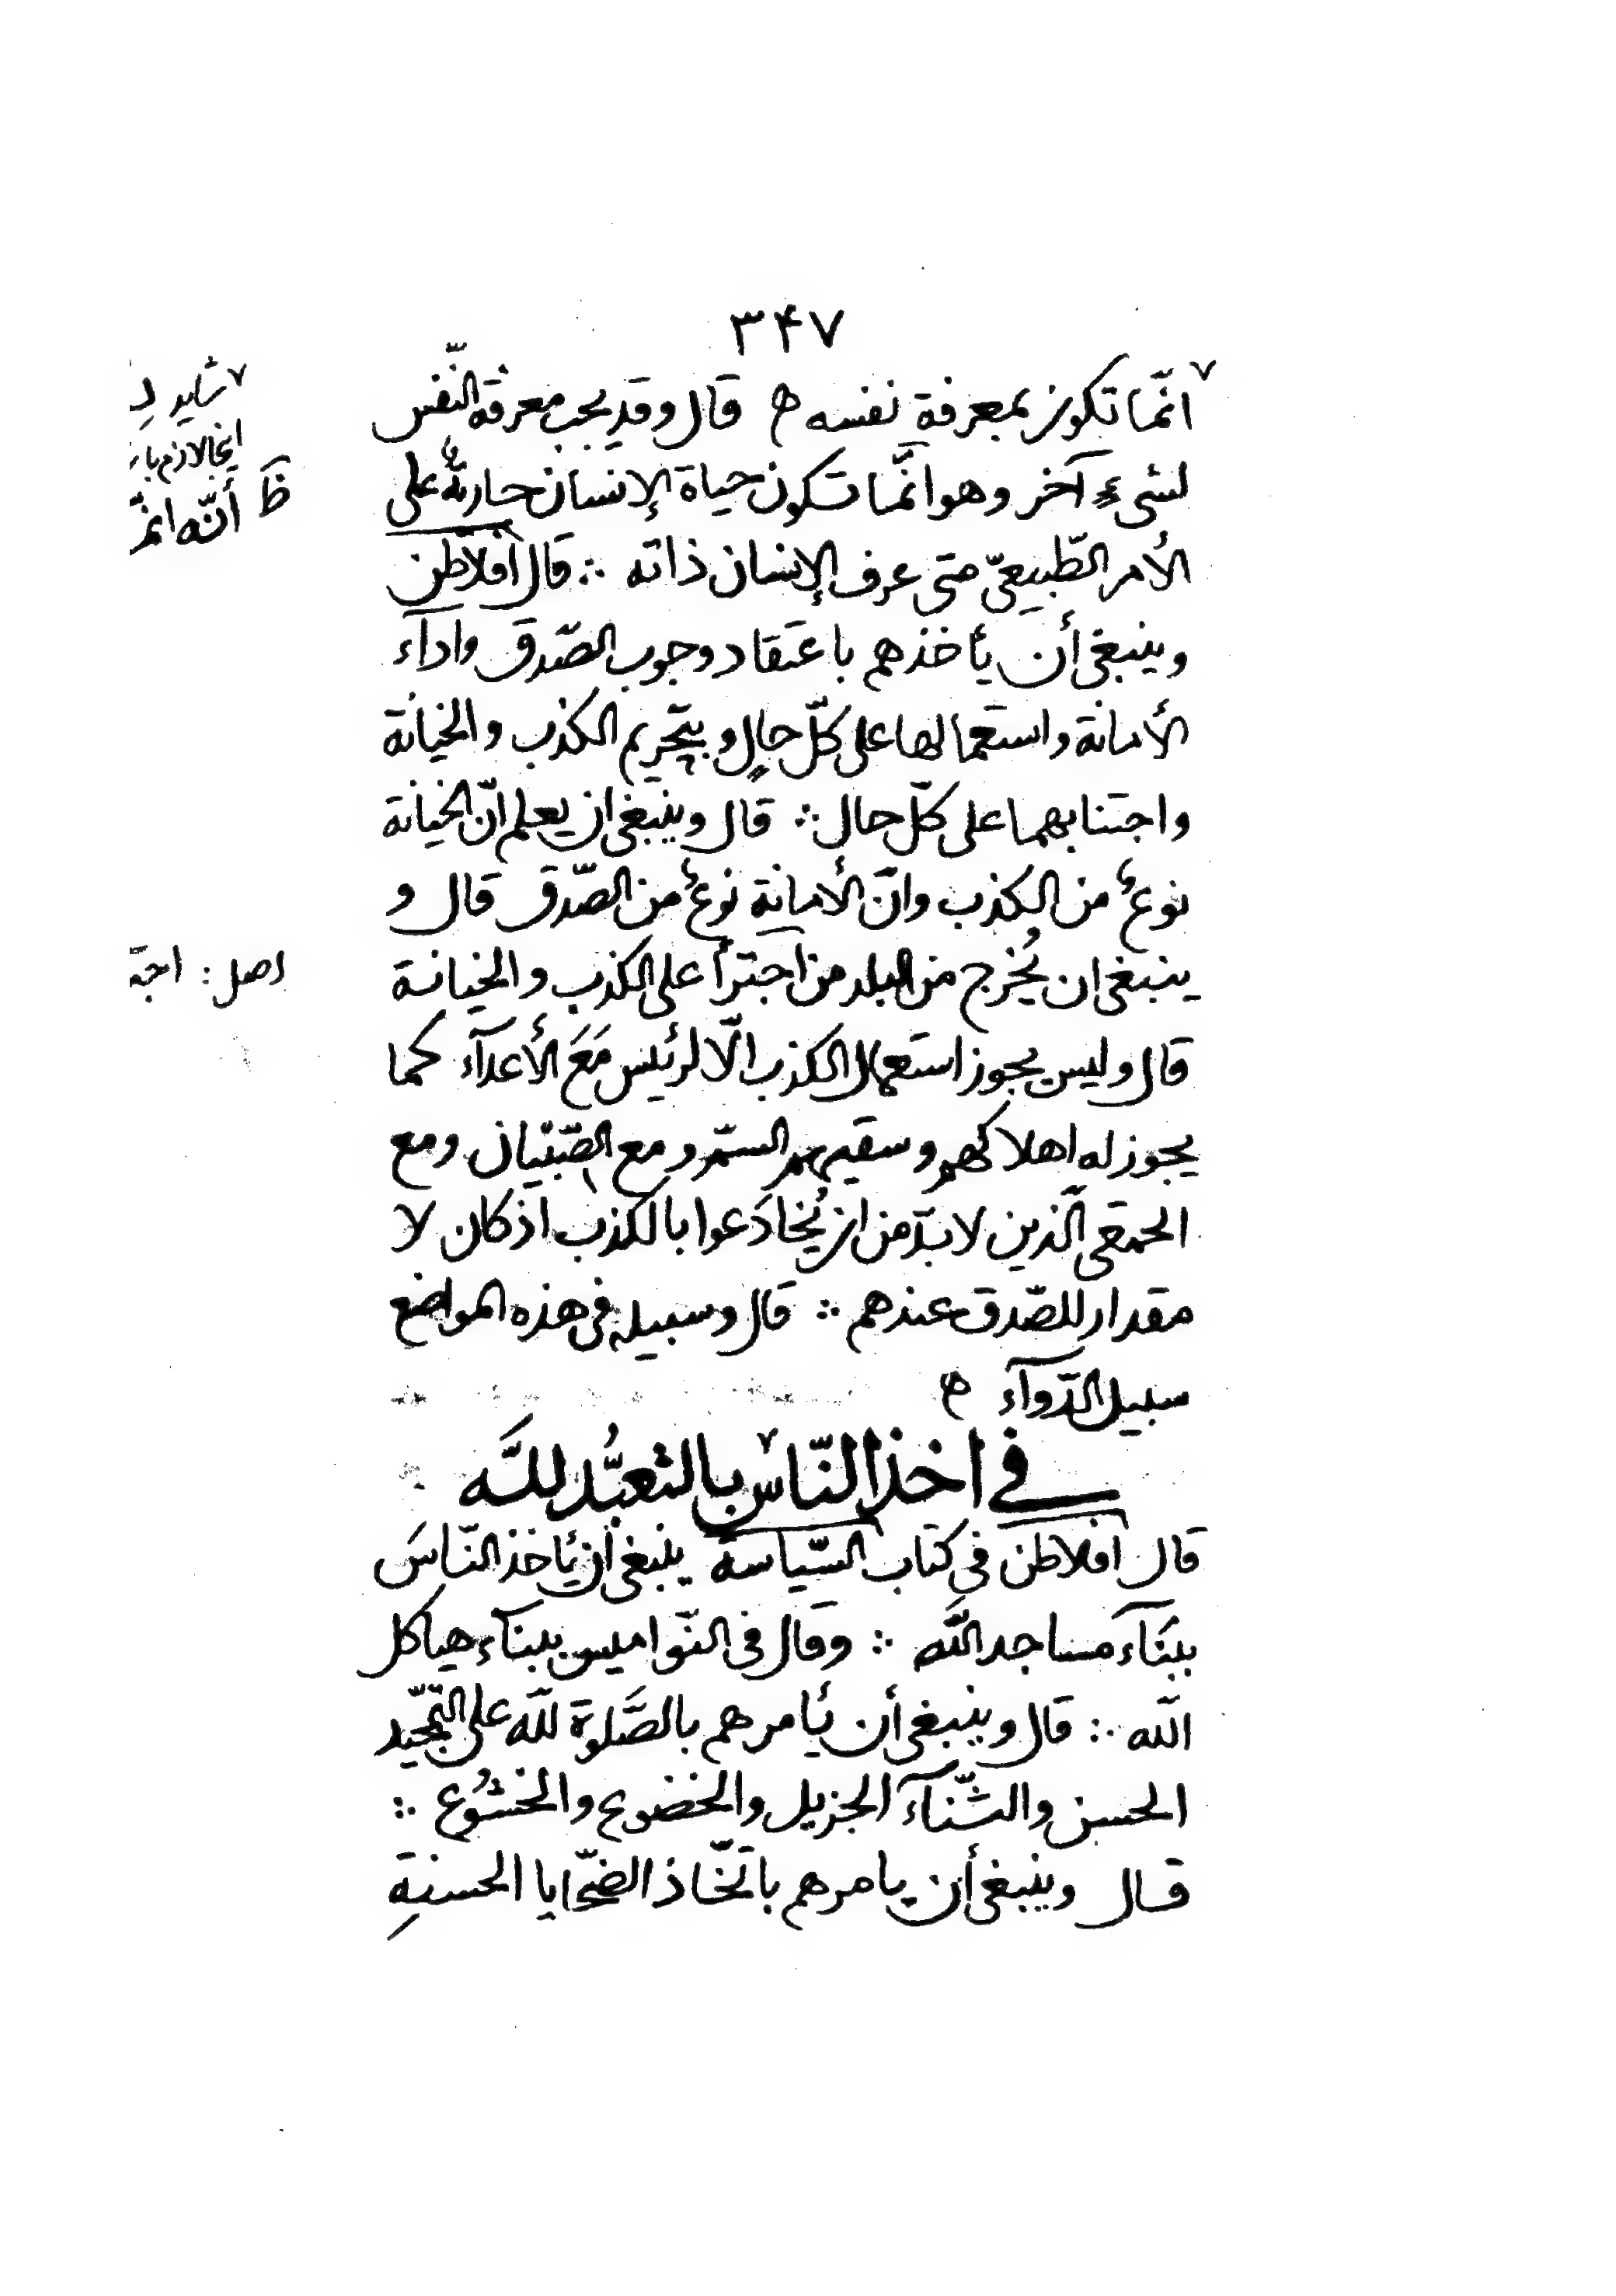 ۳۴۷
انّما تكون بمعرفةِ نفسه ه قال وقد يجب معرفة النّفس
لشىءٍ آخر وهو انّما تكون حياة الإنسان جاريةً على
الأمر الطّبيعىّ متى عرف الإنسان ذاته ∴ قال افلاطن
وينبغى أن يأخذهم باعتقاد وجوب الصّدق واداَء
الأمانة واستعمالها على كلّ حالٍ وبتحريم الكذب والخيانة
واجتنابهما على كلّ حال ∴ قال وينبغى ان يعلم انّ الخيانة
نوعٌ من الكذب وانّ الأمانة نوعٌ من الصّدق قال و
ينبغى ان يُخرج من البلد من اجترأ على الكذب والخيانة
قال وليس يجوز استعمال الكذب الّا لرئيس مَعَ الأعدآء كما
يجوز له اهلاكهم وسقيهم السّم ومع الصّبيان ومع
الحمقى الّذين لابدّ من ان يُخادَعوا بالكذب اذ كان لا
مقدار للصّدق عندهم ∴ قال وسبيله فى هذه المواضع
سبيل الدّوآء ه
فى اخذ النّاس٧ بالتعبُّد للَّه
قال افلاطن فى كتاب السّياسة ينبغى أن يأخذ النّاسَ
ببنَآء مساجد اللَّه ∴ وقال فى النّواميس ببنآء هياكل
اللّه ∴ قال وينبغى أن يأمرهم بالصَّلوة للّه على التّمجيد
الحسن والثّنآء الجزيل والخضوع والخشُوع ∴
قال وينبغى أن يامرهم باتّخاذ الضّحايا الحسنةِ
٧ شايد
اينجا لازم
ظَ أنّه انّم
اصل: اجتَ